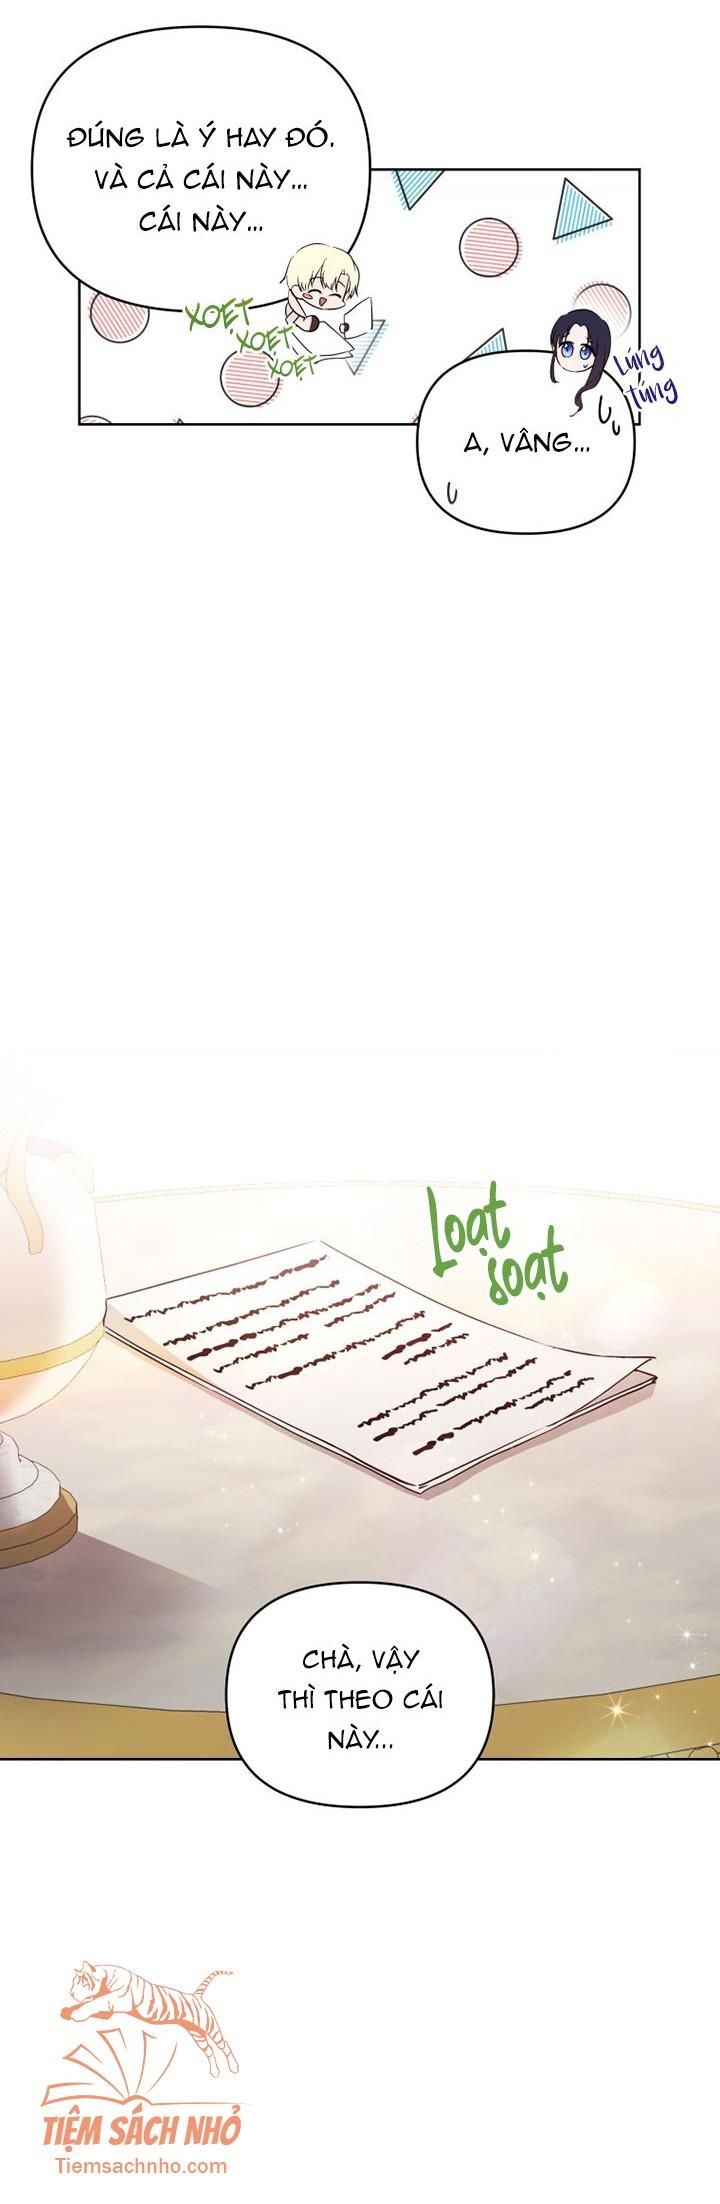 ĐÚNG LÀ Ý HAY ĐÓ.
VÀ CẢ CÁI NÀY...
CÁI NÀY...
XOẸT
XOẸT
XOẸT
Lúng
túng
A, VÂNG...
Loạt
soạt
CHÀ, VẬY
THÌ THEO CÁI
NÀY...
TIỆM SÁCH NHỎ
Tiemsachnho.com